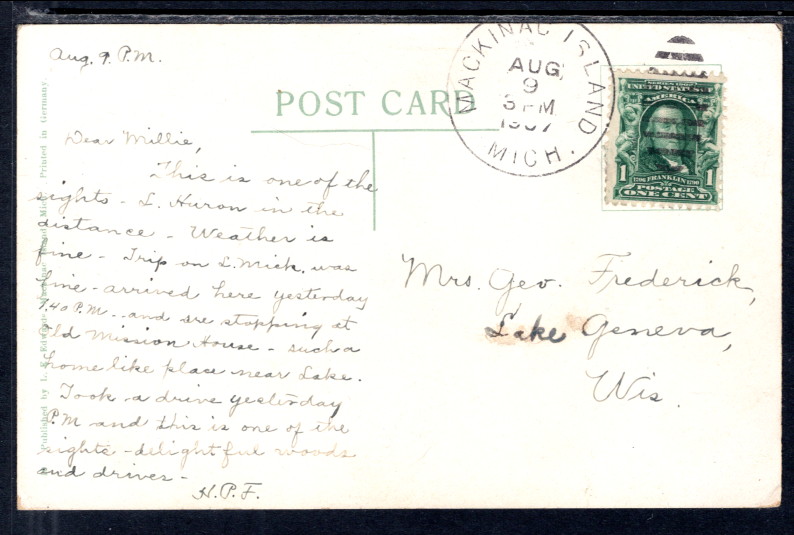 Aug. 9. P.M.
POST CARD
MACKINAC ISLAND
AUG
9
3 PM
1907
MICH.
SERIES 1902
UNITED STATES OF
AMERICA
1 1706 FRANKLIN 1790 1
POSTAGE
ONE CENT
Dear Millie,
This is one of the
sights - L. Huron in the
distance - Weather is
fine - Trip on L. Mich. was
fine - arrived here yesterday
7.40 P.M. - and are stopping at
Old Mission House - such a
home like place near Lake.
Took a drive yesterday
P.M and this is one of the
sights - delightful woods
and drives -
H.P.F.
Mrs. Geo. Frederick,
Lake Geneva,
Wis.
Published by L. Printed in Germany.